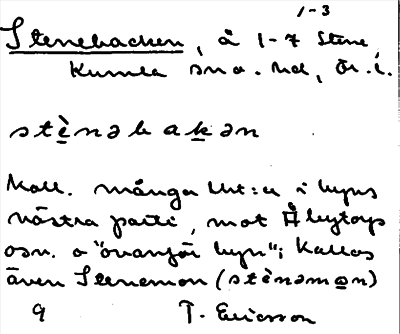 1-3
Stenebacken, å 1-7 Stene,
Kumla sn o. hd, Ör. l.
stènəbakən
Kall. många lht:er i byns
västra parti, mot Åbytorps
osn. o "ovanför byn"; Kallas
även Stenemon (stènəmon)
9 T. Ericsson